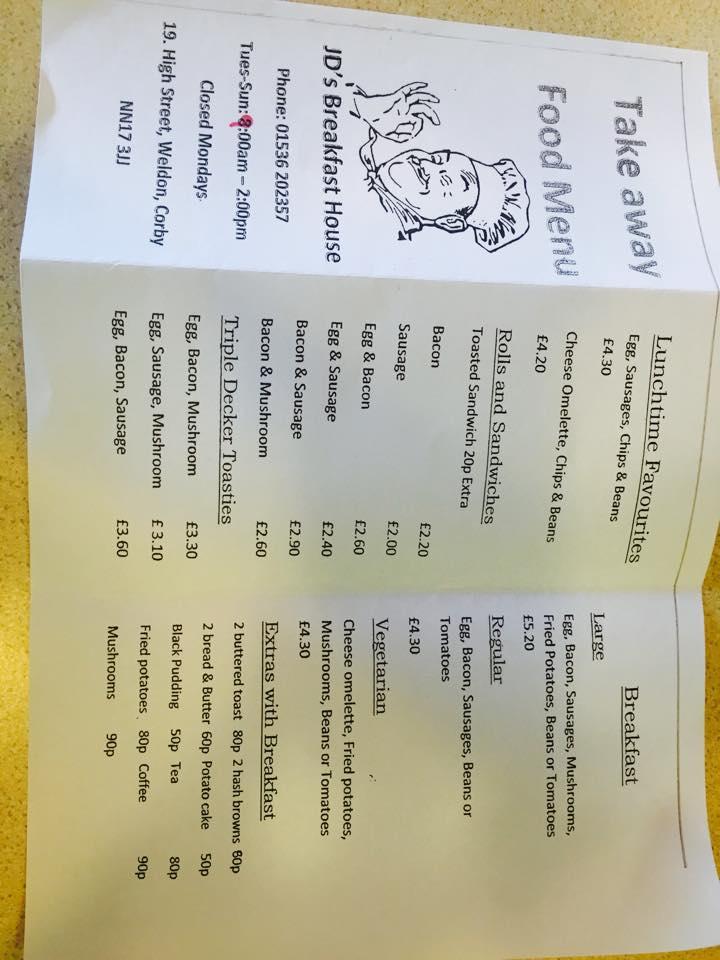 Take away
Food Menu
JD's Breakfast House
Phone: 01536 202357
Tues-Sun: 8:00am – 2:00pm
Closed Mondays
19. High Street, Weldon, Corby
NN17 3JJ
Lunchtime Favourites
Egg, Sausages, Chips & Beans
£4.30
Cheese Omelette, Chips & Beans
£4.20
Rolls and Sandwiches
Toasted Sandwich 20p Extra
Bacon £2.20
Sausage £2.00
Egg & Bacon £2.60
Egg & Sausage £2.40
Bacon & Sausage £2.90
Bacon & Mushroom £2.60
Triple Decker Toasties
Egg, Bacon, Mushroom £3.30
Egg, Sausage, Mushroom £ 3.10
Egg, Bacon, Sausage £3.60
Breakfast
Large
Egg, Bacon, Sausages, Mushrooms,
Fried Potatoes, Beans or Tomatoes
£5.20
Regular
Egg, Bacon, Sausages, Beans or
Tomatoes
£4.30
Vegetarian
Cheese omelette, Fried potatoes,
Mushrooms, Beans or Tomatoes
£4.30
Extras with Breakfast
2 buttered toast 80p 2 hash browns 60p
2 bread & Butter 60p Potato cake 50p
Black Pudding 50p Tea 80p
Fried potatoes 80p Coffee 90p
Mushrooms 90p